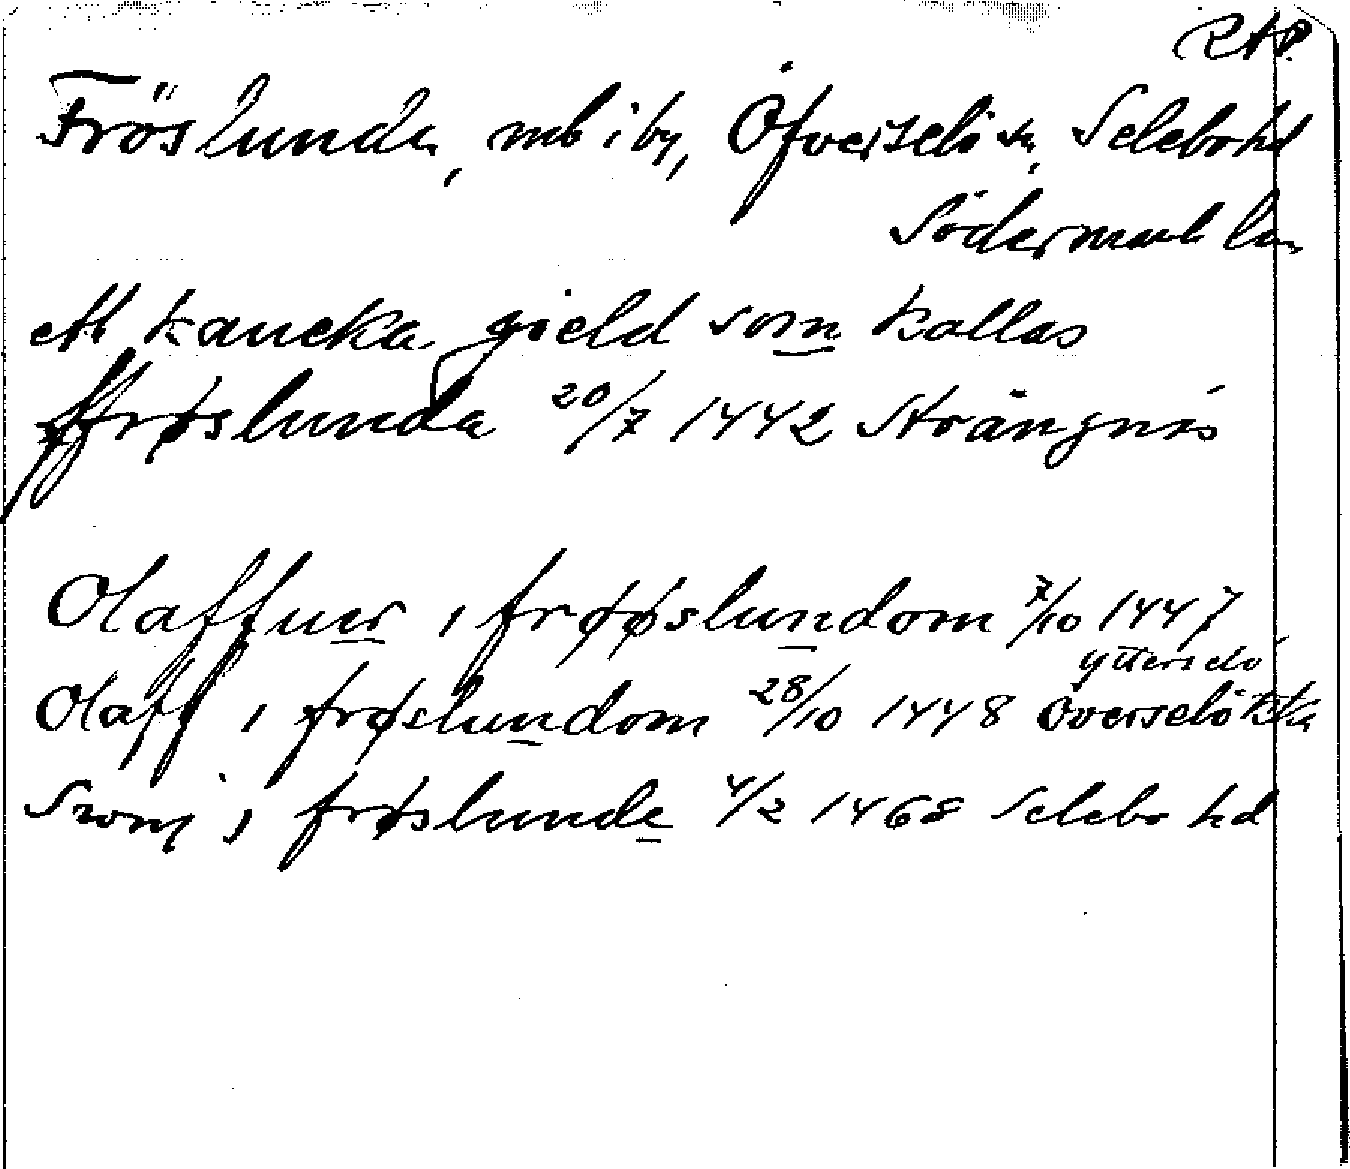 RAP.
Fröslunda, mb i by, Öfverselö sn, Selebo hd
Södermanl län
ett kancka gield som kallas
ffrøslunda 20/7 1442 Strängnäs
Olaffuer i frøøslundom 7/10 1447
Olaff i frøslundom 28/10 1448 Ytterselö Överselö kka
i frøslunde 4/2 1468 Selebo hd